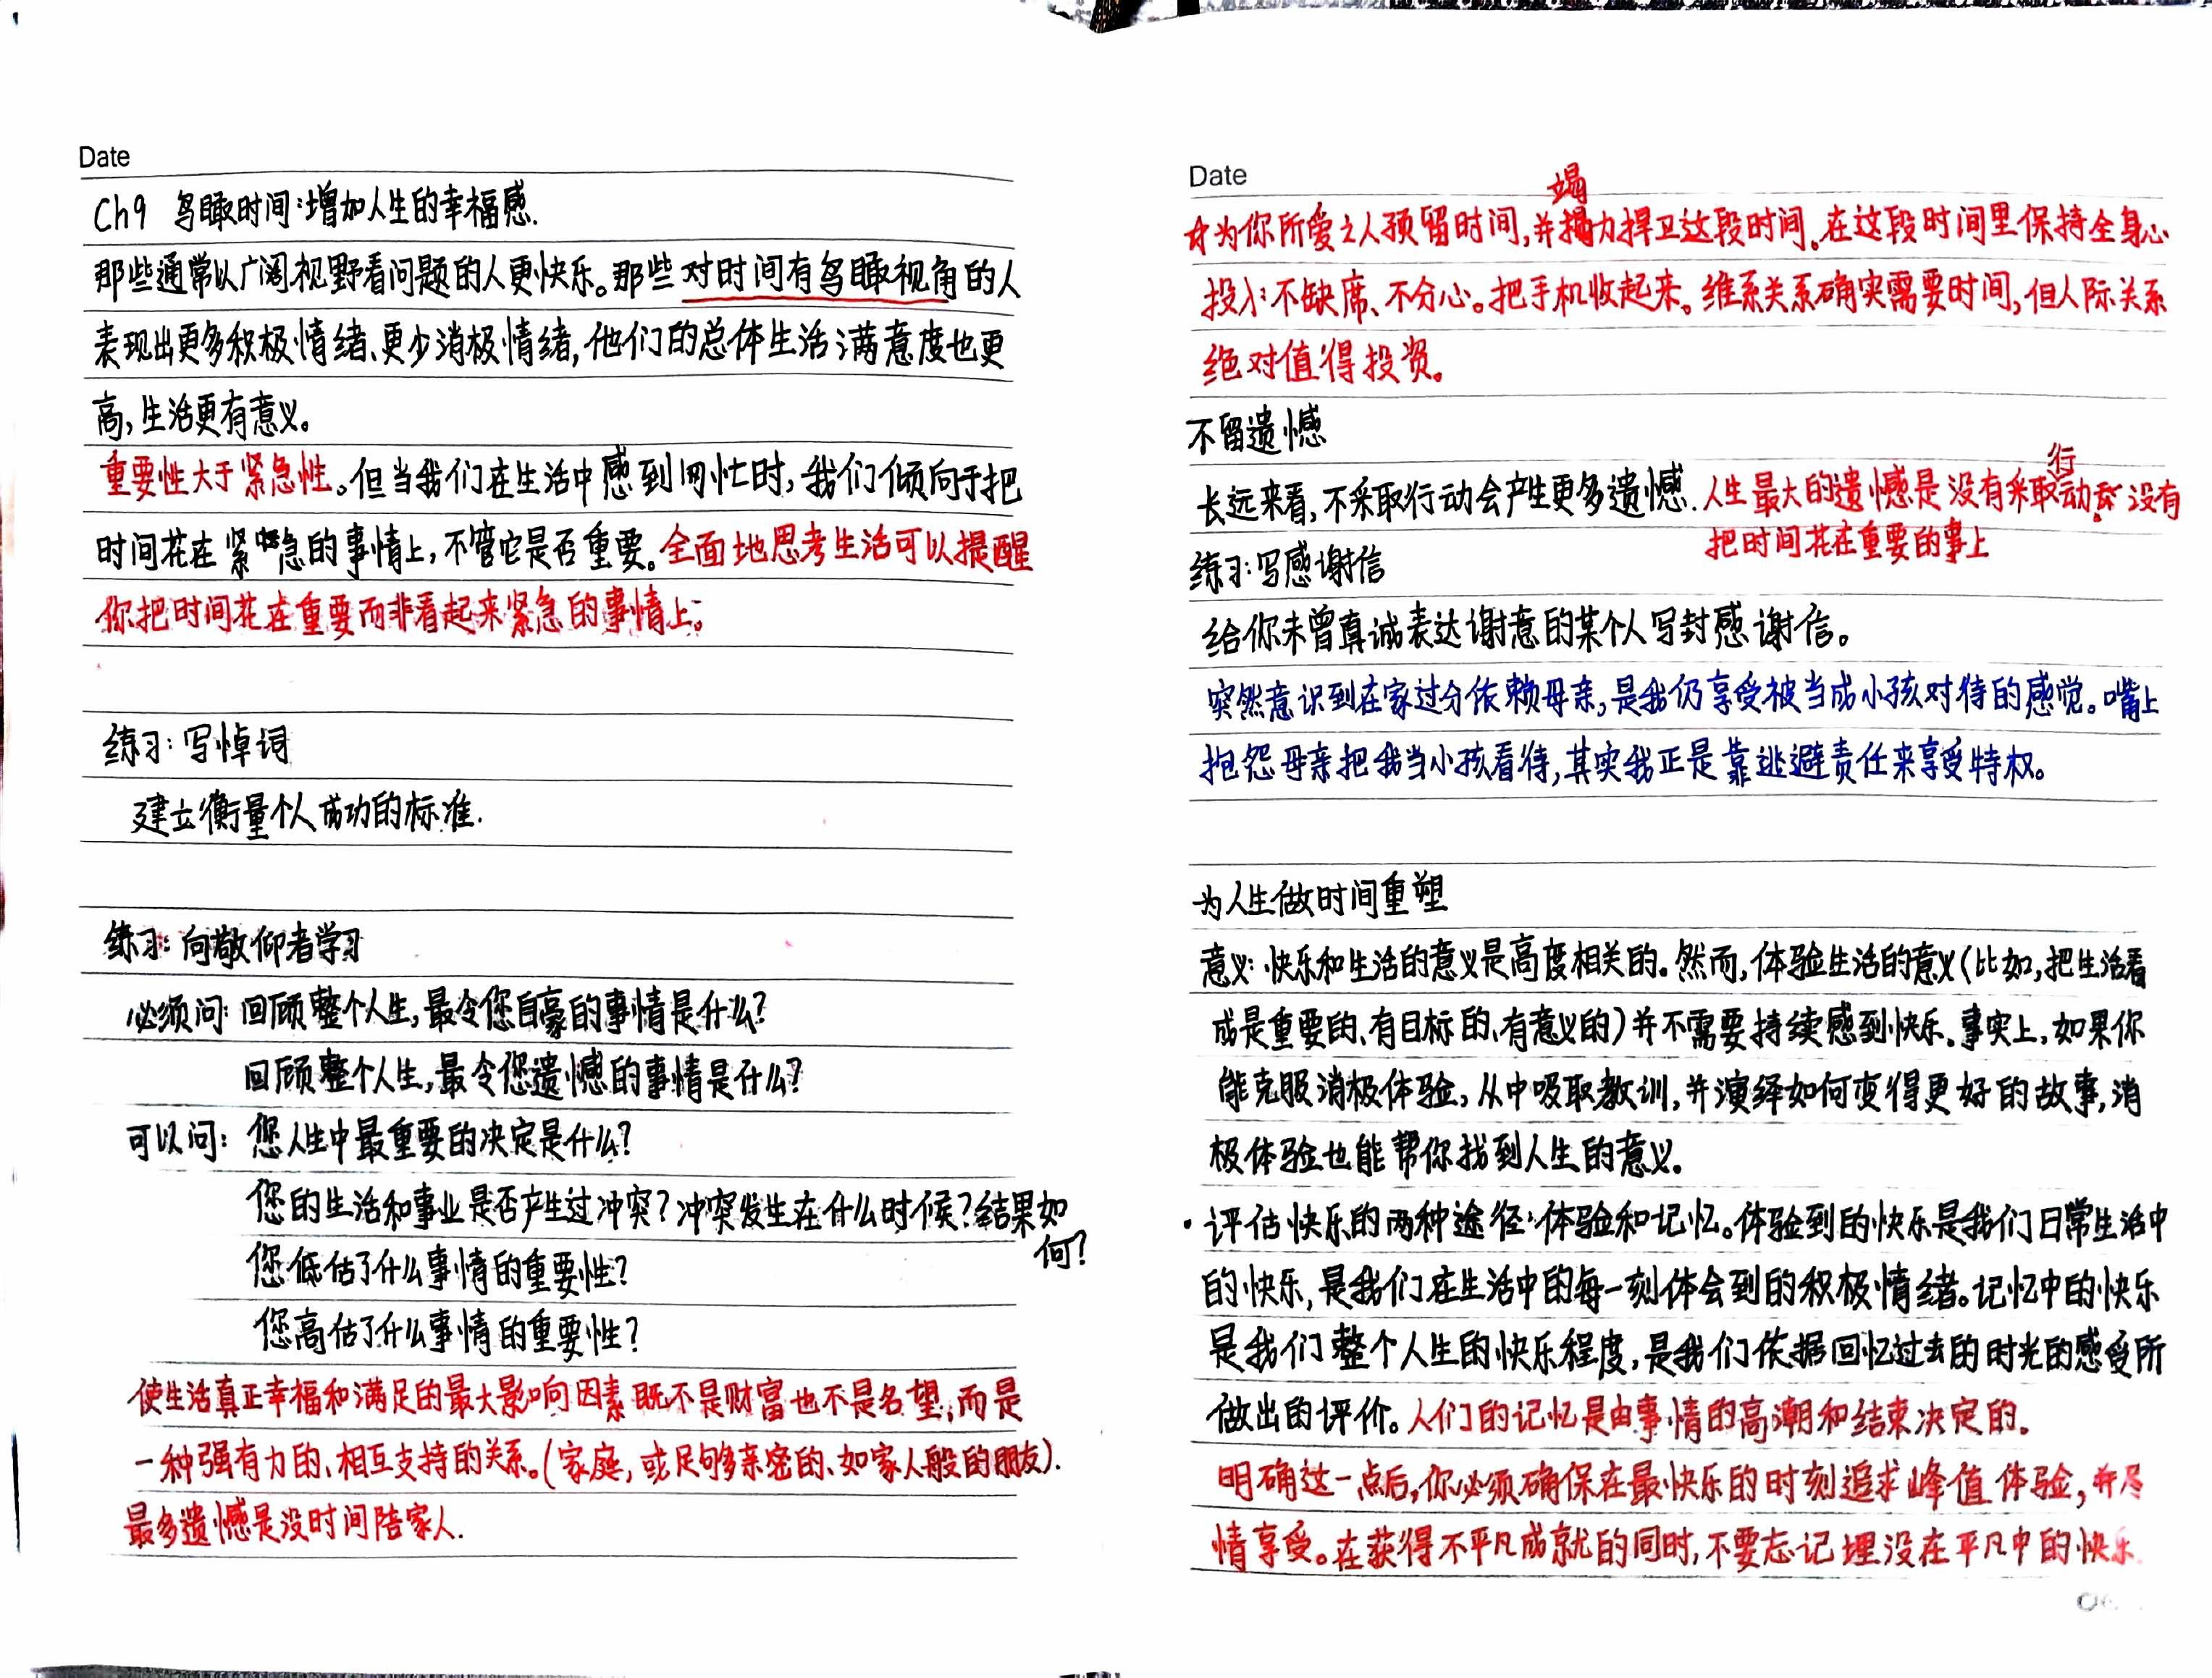 Date
Ch9 鸟瞰时间:增加人生的幸福感.
那些通常以广阔视野看问题的人更快乐。那些对时间有鸟瞰视角的人
表现出更多积极情绪、更少消极情绪,他们的总体生活满意度也更
高,生活更有意义。
重要性大于紧急性。但当我们在生活中感到匆忙时,我们倾向于把
时间花在紧急的事情上,不管它是否重要。全面地思考生活可以提醒
你把时间花在重要而非看起来紧急的事情上。
练习:写悼词
建立衡量个人成功的标准.
练习:向敬仰者学习
必须问:回顾整个人生,最令您自豪的事情是什么?
回顾整个人生,最令您遗憾的事情是什么?
可以问:您人生中最重要的决定是什么?
您的生活和事业是否产生过冲突?冲突发生在什么时候?结果如
何?
您低估了什么事情的重要性?
您高估了什么事情的重要性?
使生活真正幸福和满足的最大影响因素既不是财富也不是名望,而是
一种强有力的、相互支持的关系。(家庭,或足够亲密的、如家人般的朋友).
最多遗憾是没时间陪家人.
Date
☆为你所爱之人预留时间,并竭力捍卫这段时间。在这段时间里保持全身心
投入:不缺席、不分心。把手机收起来。维系关系确实需要时间,但人际关系
绝对值得投资。
不留遗憾
长远来看,不采取行动会产生更多遗憾.人生最大的遗憾是没有采取行动,没有
把时间花在重要的事上
练习:写感谢信
给你未曾真诚表达谢意的某个人写封感谢信。
突然意识到在家过分依赖母亲,是我仍享受被当成小孩对待的感觉。嘴上
抱怨母亲把我当小孩看待,其实我正是靠逃避责任来享受特权。
为人生做时间重塑
意义:快乐和生活的意义是高度相关的。然而,体验生活的意义(比如,把生活看
成是重要的、有目标的、有意义的)并不需要持续感到快乐。事实上,如果你
能克服消极体验,从中吸取教训,并演绎如何变得更好的故事,消
极体验也能帮你找到人生的意义。
·评估快乐的两种途径:体验和记忆。体验到的快乐是我们日常生活中
的快乐,是我们在生活中的每一刻体会到的积极情绪。记忆中的快乐
是我们整个人生的快乐程度,是我们依据回忆过去的时光的感受所
做出的评价。人们的记忆是由事情的高潮和结束决定的。
明确这一点后,你必须确保在最快乐的时刻追求峰值体验,并尽
情享受。在获得不平凡成就的同时,不要忘记埋没在平凡中的快乐.